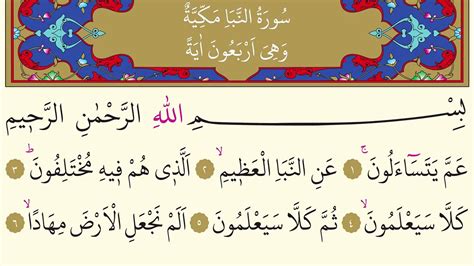 سُورَةُ النَّبَأِ مَكِّيَّةٌ
وَهِيَ اَرْبَعُونَ اٰيَةً
بِسْمِ اللهِ الرَّحْمٰنِ الرَّحٖيمِ
عَمَّ يَتَسَٓاءَلُونَۚ ﴿١﴾ عَنِ النَّبَأِ الْعَظٖيمِۙ ﴿٢﴾ اَلَّذٖي هُمْ فٖيهِ مُخْتَلِفُونَؕ ﴿٣﴾
كَلَّا سَيَعْلَمُونَۙ ﴿٤﴾ ثُمَّ كَلَّا سَيَعْلَمُونَ ﴿٥﴾ اَلَمْ نَجْعَلِ الْاَرْضَ مِهَادًاۙ ﴿٦﴾